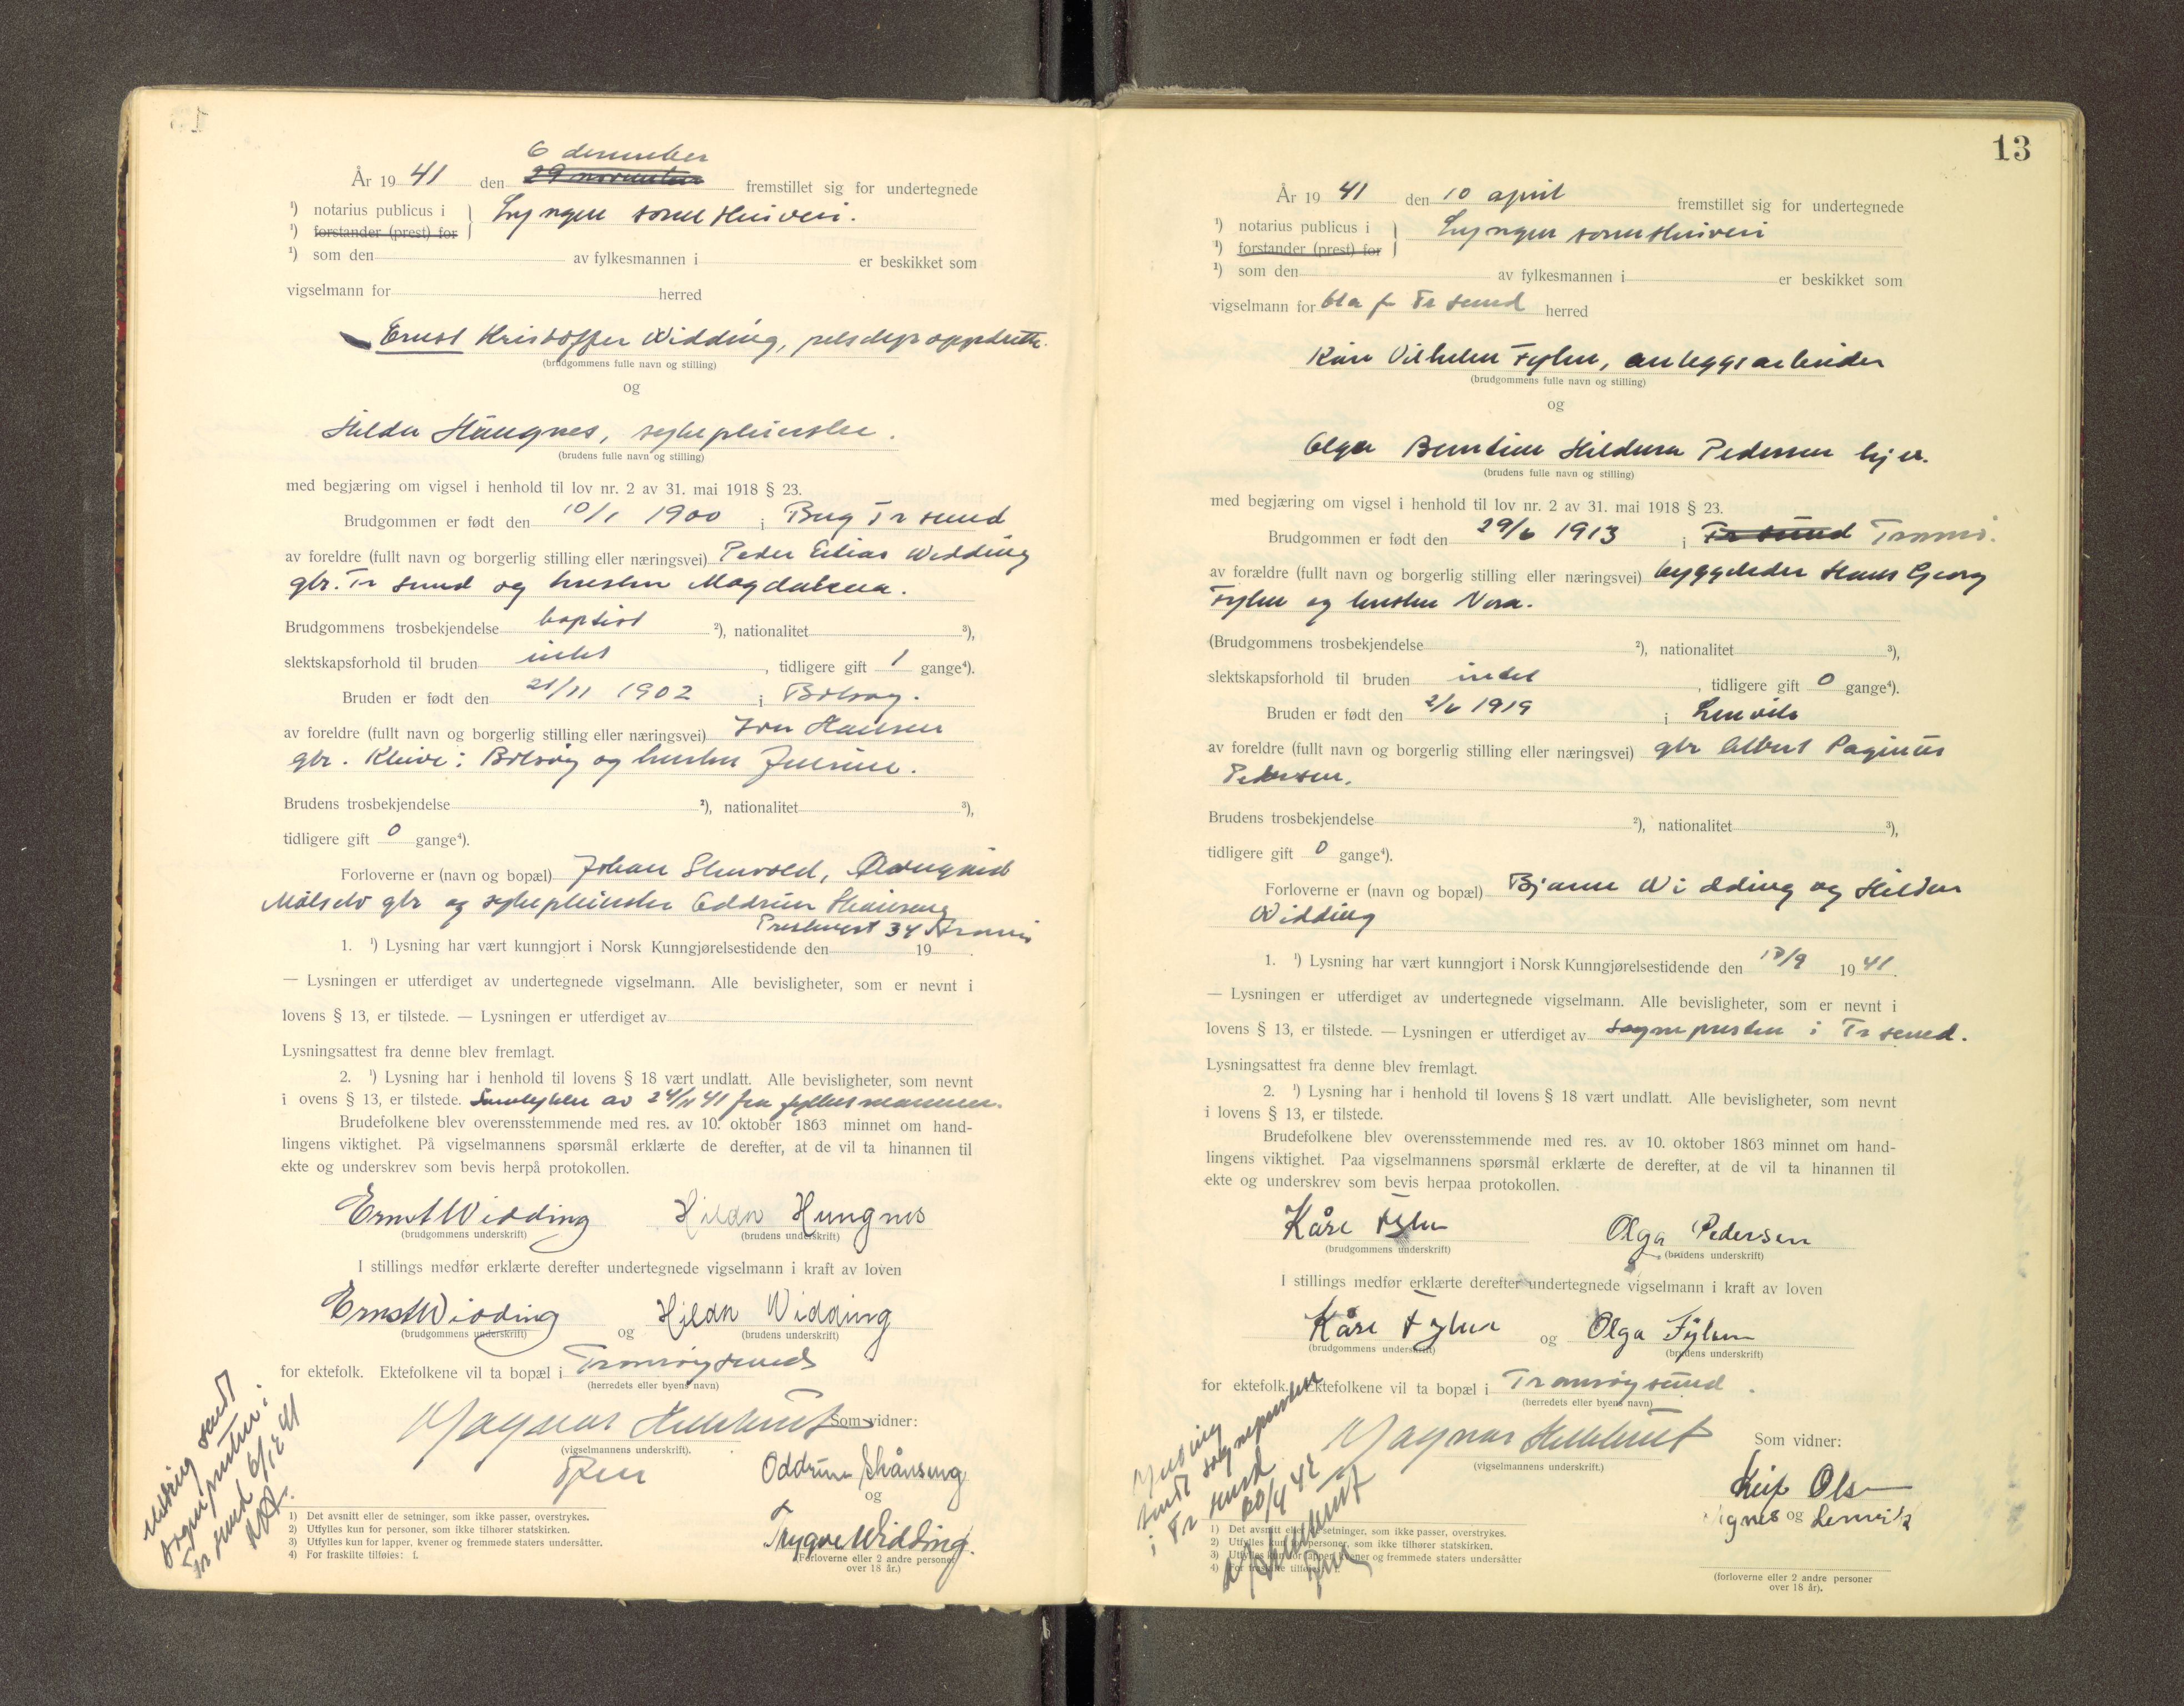 6 desember
År 1941 den 29 november fremstillet sig for undertegnede
¹) notarius publicus i } Lyngen sorenskriveri.
¹) forstander (prest) for
¹) som den av fylkesmannen i er beskikket som
vigselmann for herred
Ernst Kristoffer Widding, pelsdyroppdretter.
(brudgommens fulle navn og stilling)
og
Hilda Haugnes, sykepleierske.
(brudens fulle navn og stilling)
med begjæring om vigsel i henhold til lov nr. 2 av 31. mai 1918 § 23.
Brudgommen er født den 10/1 1900 i Berg Tr sund
av foreldre (fullt navn og borgerlig stilling eller næringsvei) Peder Elias Widding
gbr. Tr sund og hustru Magdalena.
Brudgommens trosbekjendelse baptist ²), nationalitet ³),
slektskapsforhold til bruden intet , tidligere gift 1 gange⁴).
Bruden er født den 21/11 1902 i Bolsøy.
av foreldre (fullt navn og borgerlig stilling eller næringsvei) Iver Hansen
gbr. Kleive i Bolsøy og hustru
Brudens trosbekjendelse ²), nationalitet ³),
tidligere gift 0 gange⁴).
Forloverne er (navn og bopæl) Johan
Målselv gbr og sykepleierske Oddrun
34 Tromsø
1. ¹) Lysning har vært kunngjort i Norsk Kunngjørelsestidende den 19 .
— Lysningen er utferdiget av undertegnede vigselmann. Alle bevisligheter, som er nevnt i
lovens § 13, er tilstede. — Lysningen er utferdiget av
Lysningsattest fra denne blev fremlagt.
2. ¹) Lysning har i henhold til lovens § 18 vært undlatt. Alle bevisligheter, som nevnt
i ovens § 13, er tilstede. Samtykke av 24/11 41 fra fylkesmannen.
Brudefolkene blev overensstemmende med res. av 10. oktober 1863 minnet om hand-
lingens viktighet. På vigselmannens spørsmål erklærte de derefter, at de vil ta hinannen til
ekte og underskrev som bevis herpå protokollen.
Ernst Widding Hilda Hungnes
(brudgommens underskrift) (brudens underskrift)
I stillings medfør erklærte derefter undertegnede vigselmann i kraft av loven
Ernst Widding og Hilda Widding
(brudgommens underskrift) (brudens underskrift)
for ektefolk. Ektefolkene vil ta bopæl i Tromsøysund
(herredets eller byens navn)
Magnar
Som vidner:
(vigselmannens underskrift).
Oddrun
og
Trygve Widding.
(Forloverne eller 2 andre personer
over 18 år.)
Melding sendt
sognepresten i
Tr sund 6/12 41
1) Det avsnitt eller de setninger, som ikke passer, overstrykes.
2) Utfylles kun for personer, som ikke tilhører statskirken.
3) Utfylles kun for lapper, kvener og fremmede staters undersåtter.
4) For fraskilte tilføies: f.
13
År 1941 den 10 april fremstillet sig for undertegnede
¹) notarius publicus i } Lyngen sorenskriveri
¹) forstander (prest) for
¹) som den av fylkesmannen i er beskikket som
vigselmann for bla f Tr sund herred
Kåre Vilhelm Fylen, anleggsarbeider
(brudgommens fulle navn og stilling)
og
Olga Berntine Hildura Pedersen hj
(brudens fulle navn og stilling)
med begjæring om vigsel i henhold til lov nr. 2 av 31. mai 1918 § 23.
Brudgommen er født den 29/6 1913 i Tr sund Tromsø.
av forældre (fullt navn og borgerlig stilling eller næringsvei) byggeleder Hans Georg
Fylen og hustru Nora.
(Brudgommens trosbekjendelse ²), nationalitet ³),
slektskapsforhold til bruden intet , tidligere gift 0 gange⁴).
Bruden er født den 2/6 1919 i Lenvik
av foreldre (fullt navn og borgerlig stilling eller næringsvei) gbr Albert Paginus
Pedersen.
Brudens trosbekjendelse ²), nationalitet ³),
tidligere gift 0 gange⁴).
Forloverne er (navn og bopæl) Bjarne Widding og Hildur
Widding
1. ¹) Lysning har vært kunngjort i Norsk Kunngjørelsestidende den 13/9 1941.
— Lysningen er utferdiget av undertegnede vigselmann. Alle bevisligheter, som er nevnt i
lovens § 13, er tilstede. — Lysningen er utferdiget av sognepresten i Tr sund.
Lysningsattest fra denne blev fremlagt.
2. ¹) Lysning har i henhold til lovens § 18 vært undlatt. Alle bevisligheter, som nevnt
i lovens § 13, er tilstede.
Brudefolkene blev overensstemmende med res. av 10. oktober 1863 minnet om hand-
lingens viktighet. Paa vigselmannens spørsmål erklærte de derefter, at de vil ta hinannen til
ekte og underskrev som bevis herpaa protokollen.
Kåre Fylen Olga Pedersen
(brudgommens underskrift) (brudens underskrift)
I stillings medfør erklærte derefter undertegnede vigselmann i kraft av loven
Kåre Fylen og Olga Fylen
(brudgommens underskrift) (brudens underskrift)
for ektefolk. Ektefolkene vil ta bopæl i Tromsøysund.
(herredets eller byens navn)
Magnar
Som vidner:
(vigselmannens underskrift.)
Leif Olsen
og
(forloverne eller 2 andre personer
over 18 år).
Melding
sendt sognepresten
i Tr sund
20/4 42
1) Det avsnitt eller de setninger, som ikke passer, overstrykes.
2) Utfylles kun for personer, som ikke tilhører statskirken.
3) Utfylles kun for lapper, kvener og fremmede staters undersåtter
4) For fraskilte tilføies: